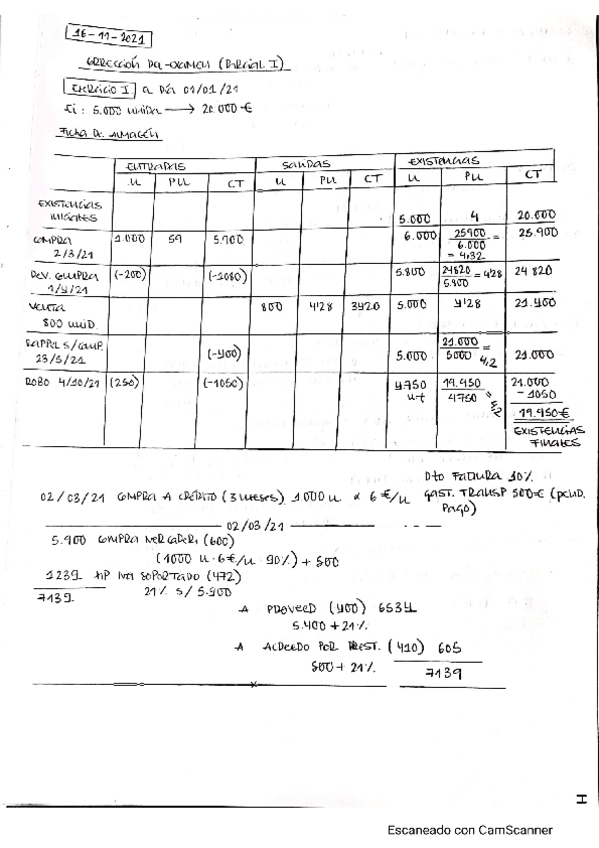 16-11-2021
CORRECCIÓN DEL EXAMEN (PARCIAL I)
EJERCICIO I a Día 01/01/21
Ei: 5.000 unida → 20.000€
FICHA DE ALMACÉN
ENTRADAS SALIDAS EXISTENCIAS
U PU CT U PU CT U PU CT
EXISTENCIAS INICIALES 5.000 4 20.000
COMPRA 2/3/21 1.000 5,9 5.900 6.000 25900/6.000 = 4,32 25.900
DEV. COMPRA 1/4/21 (-200) (-1080) 5.800 24820/5.800 = 4'28 24 820
VENTA 800 UNID. 800 4'28 3420 5.000 4'28 21.400
RAPPEL S/COMP. 23/5/21 (-400) 5.000 21.000/5000 4,2 21.000
ROBO 4/10/21 (250) (-1050) 4750 u-t 19.950/4750 = 4,2 21.000
- 1050
19.950€
EXISTENCIAS FINALES
Dto FACTURA 10%
02/03/21 COMPRA A CRÉDITO (3 meses) 1000 u x 6€/u GAST. TRANSP 500€ (pend. Pago)
02/03/21
5.900 COMPRA MERCADERI (600)
(1000 u · 6€/u · 90%) + 500
1239 HP IVA SOPORTADO (472)
7139 21% s/ 5.900
A PROVEED (400) 6534
5.400 + 21%
A ACREEDO POR PREST. (410) 605
500 + 21%
7139
I
Escaneado con CamScanner